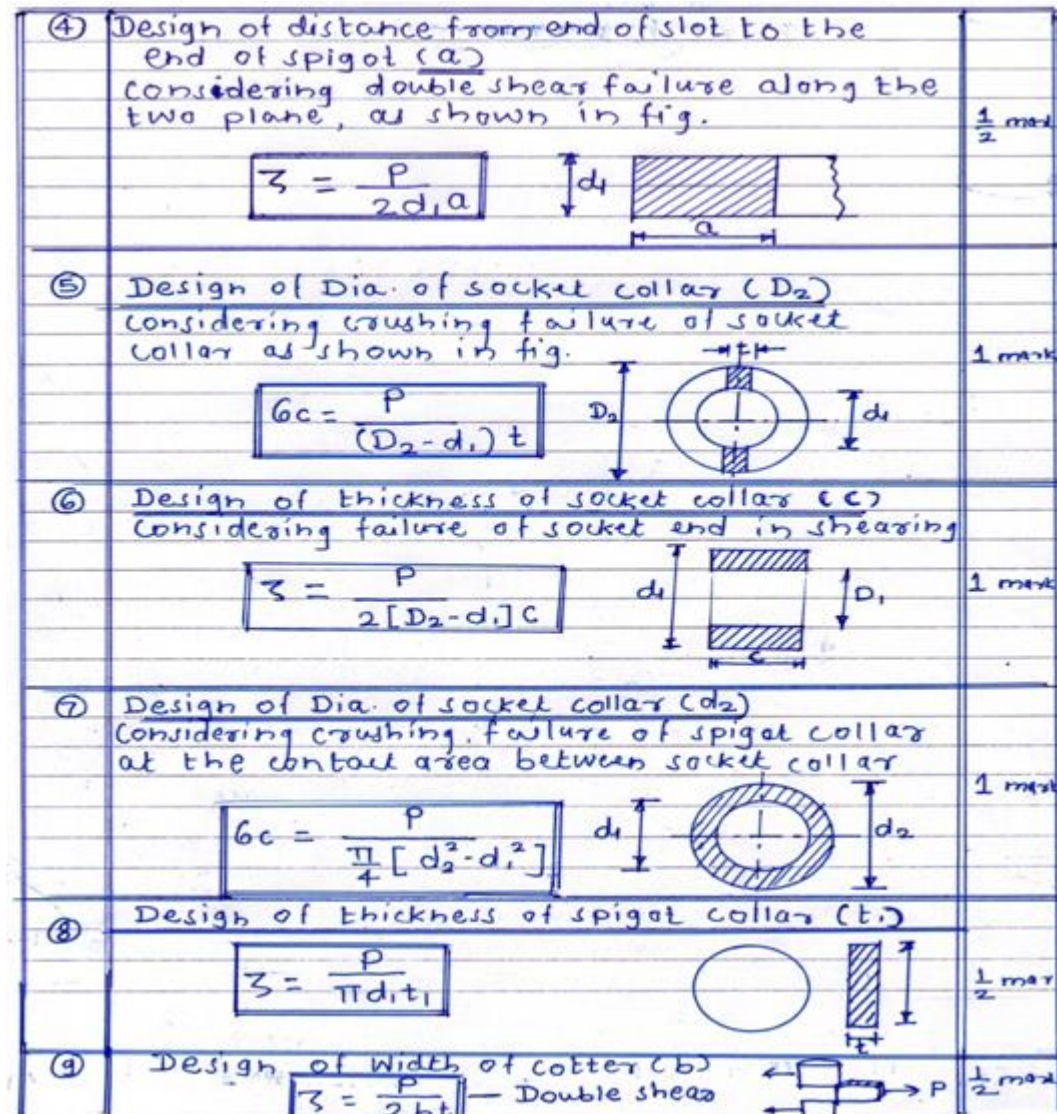 ④ Design of distance from end of slot to the
end of spigot (a)
considering double shear failure along the
two plane, as shown in fig.
1/2 mark
ζ = P / 2d₁a
d₁
a
⑤ Design of Dia. of socket collar (D₂)
Considering crushing failure of socket
collar as shown in fig.
1 mark
t
6c = P / (D₂-d₁) t
D₂
d₁
⑥ Design of thickness of socket collar (c)
Considering failure of socket end in shearing
1 mark
ζ = P / 2[D₂-d₁]c
d₁
D₁
c
⑦ Design of Dia. of socket collar (d₂)
Considering crushing failure of spigot collar
at the contact area between socket collar
1 mark
6c = P / π/4 [d₂²-d₁²]
d₁
d₂
⑧ Design of thickness of spigot collar (t₁)
ζ = P / πd₁t₁
t
1/2 mar
⑨ Design of width of cotter (b)
ζ = P / 2bt — Double shear
P
1/2 mark